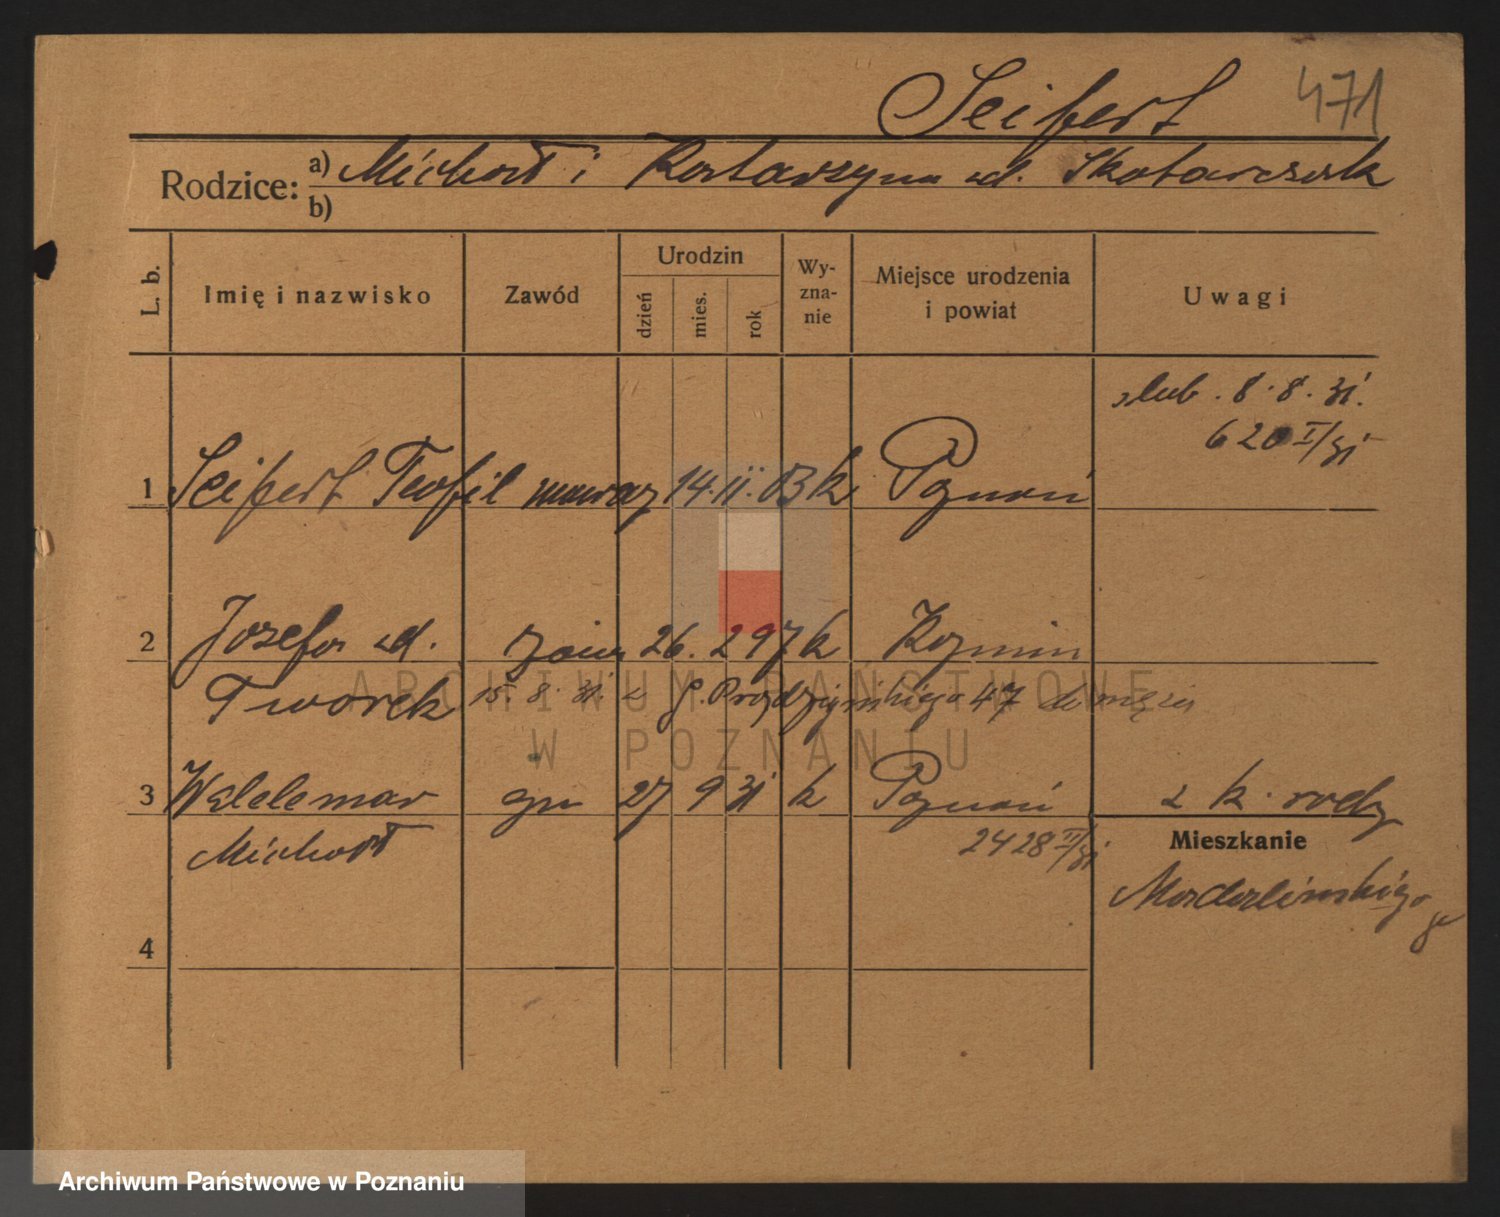 Seifert 471
Rodzice: a) Michał i Katarzyna zd. Skotarczak
b)
L. b. Imię i nazwisko Zawód Urodzin dzień mies. rok Wy-zna-nie Miejsce urodzenia i powiat Uwagi
ślub. 8.8.31.
620 I/31
1 Seifert Teofil murarz 14. 11. 03 k Poznań
2 Józefa zd. żona 26. 2 97 k Koźmin
Tworek 15. 8. 31. z G. Prądzyńskiego 47 do męża
3 Waldemar syn 27 9 31 k Poznań z k. rodz
Michał 2428 II/31
Mieszkanie
4
ARCHIWUM PAŃSTWOWE
W POZNANIU
Archiwum Państwowe w Poznaniu